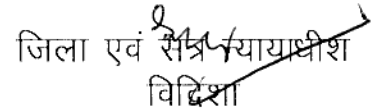 जिला एवं सत्र न्यायाधीश
विदिशा